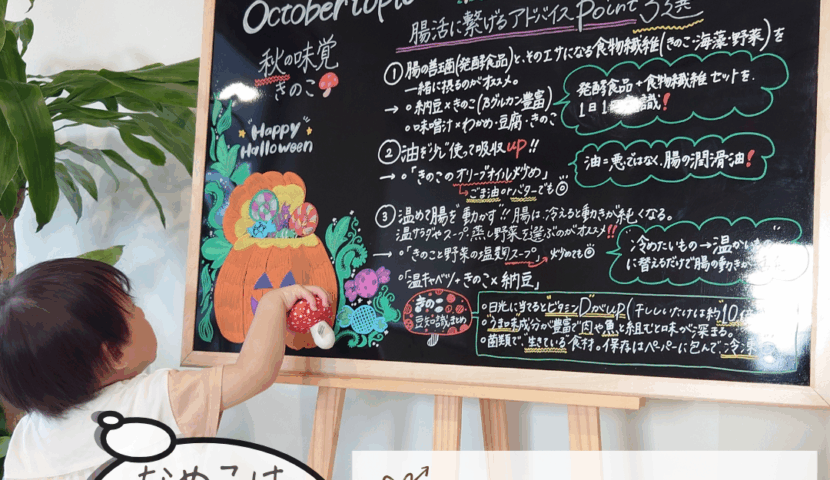 October
腸活に繋げるアドバイス Point 3選
秋の味覚
きのこ
①腸の善玉菌(発酵食品)と、そのエサになる食物繊維(きのこ・海藻・野菜)を
一緒に摂るのがオススメ。
→ ○納豆×きのこ(βグルカン豊富)
○味噌汁×わかめ・豆腐・きのこ
発酵食品+食物繊維セットを、
1日1
識!
"Happy
Halloween"
②油を少し使って吸収up!!
→ ○「きのこのオリーブオイル炒め」
→ごま油orバターでも◎
油=悪ではなく、腸の潤滑油!
③温めて腸を動かす!!腸は冷えると動きが鈍くなる。
温サラダやスープ、蒸し野菜を選ぶのがオススメ!!
→ ○「きのこと野菜の塩麹スープ」→炒めても◎
○「温キャベツ+きのこ×納豆」
冷めたいもの→温かいもの
に替えるだけで腸の動きが
きのこ
豆知識まとめ
・日光に当てるとビタミンDがup(干ししいたけは約10
・うま味成分が豊富で肉や魚と組むと味が深まる。
・菌類で、生きている食材。保存はペーパーに包んで冷凍
なめこは